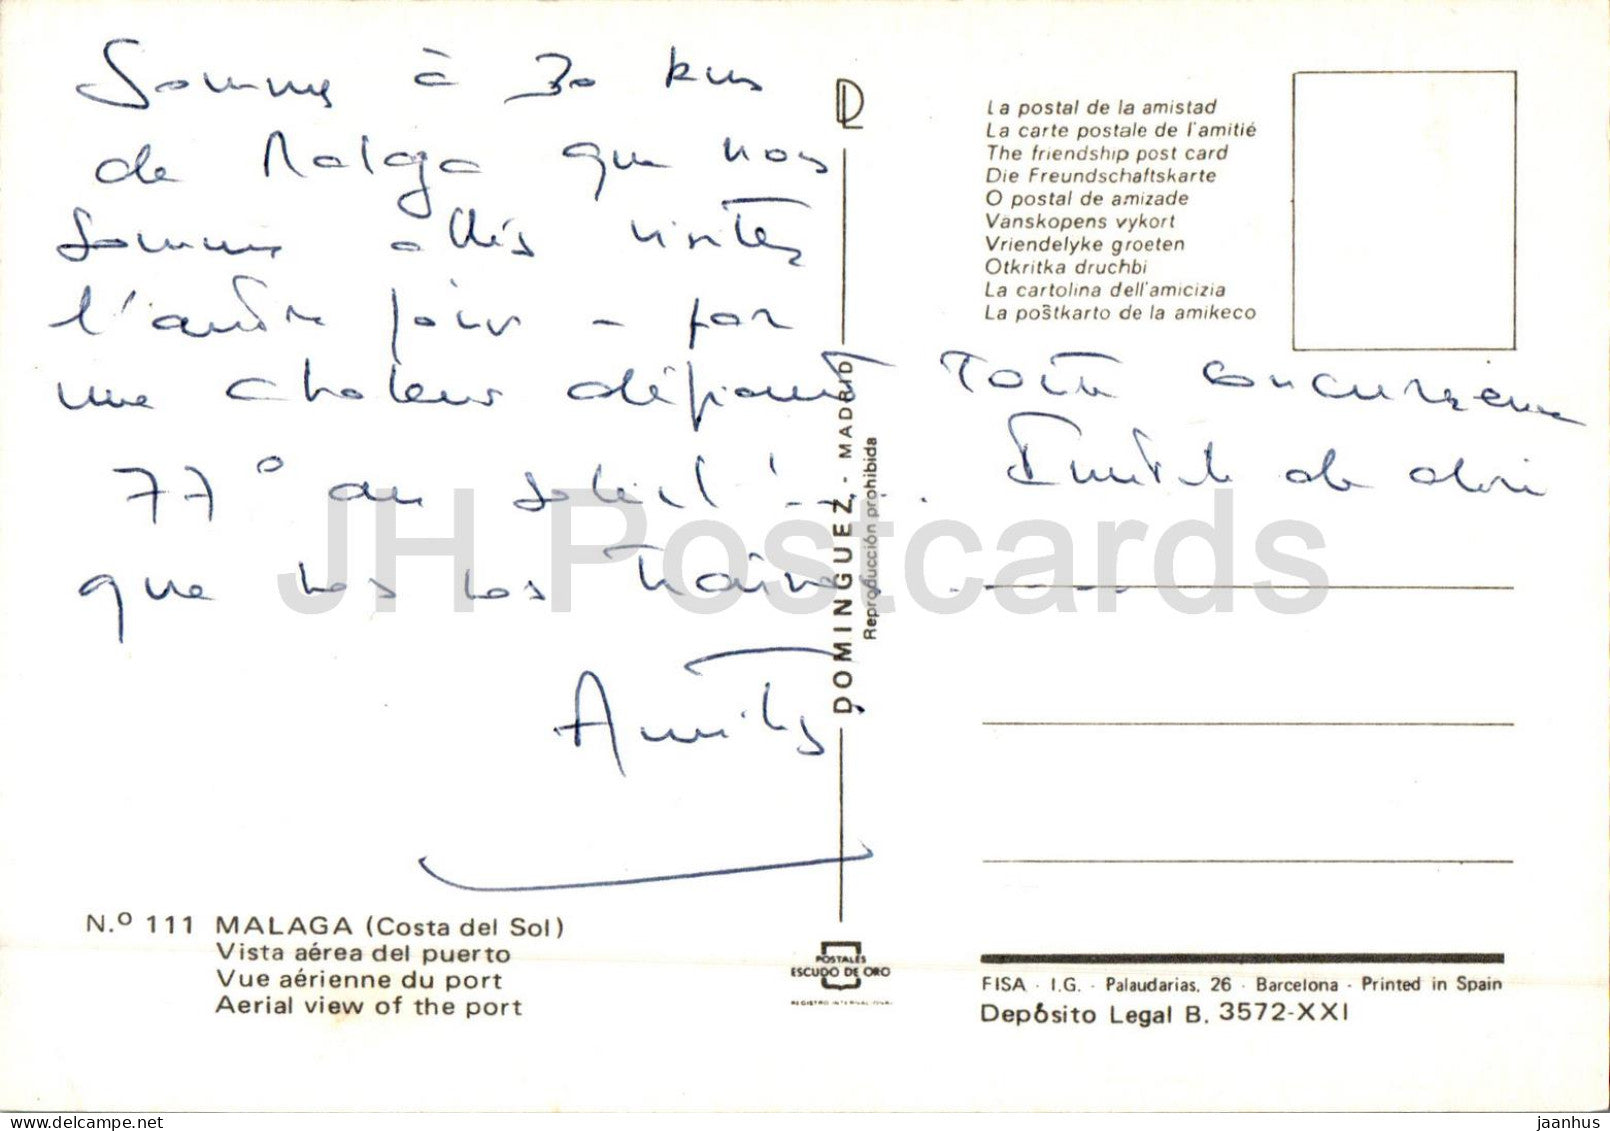 Sommes à 30 kms
de Malaga que nous
sommes allés visiter
l'autre jour - par
une chaleur défiant toute concurrence
77° au soleil ! ... . Inutile de dire
que nos nos traîne ......
Amitiés
DL
La postal de la amistad
La carte postale de l'amitié
The friendship post card
Die Freundschaftskarte
O postal de amizade
Vanskopens vykort
Vriendelyke groeten
Otkritka druchbi
La cartolina dell'amicizia
La poŝtkarto de la amikeco
DOMINGUEZ, - MADRID
Reproducción prohibida
N.º 111 MALAGA (Costa del Sol)
Vista aérea del puerto
Vue aérienne du port
Aerial view of the port
POSTALES
ESCUDO DE ORO
REGISTRO INTERNACIONAL
FISA · I.G. - Palaudarias, 26 · Barcelona · Printed in Spain
Depósito Legal B. 3572-XXI
JH Postcards
jaanhus